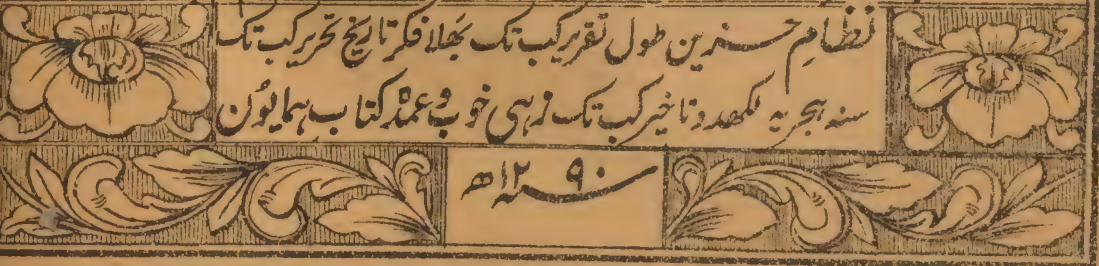 نظام حزین طول تقریر کب تک بھلا فکر تاریخ تحریر کب تک
سنہ ہجریہ لکھدو تاخیر کب تک زہی خوب و عمدہ کتاب ہمایون
سنہ ۱۲۹۰ھ